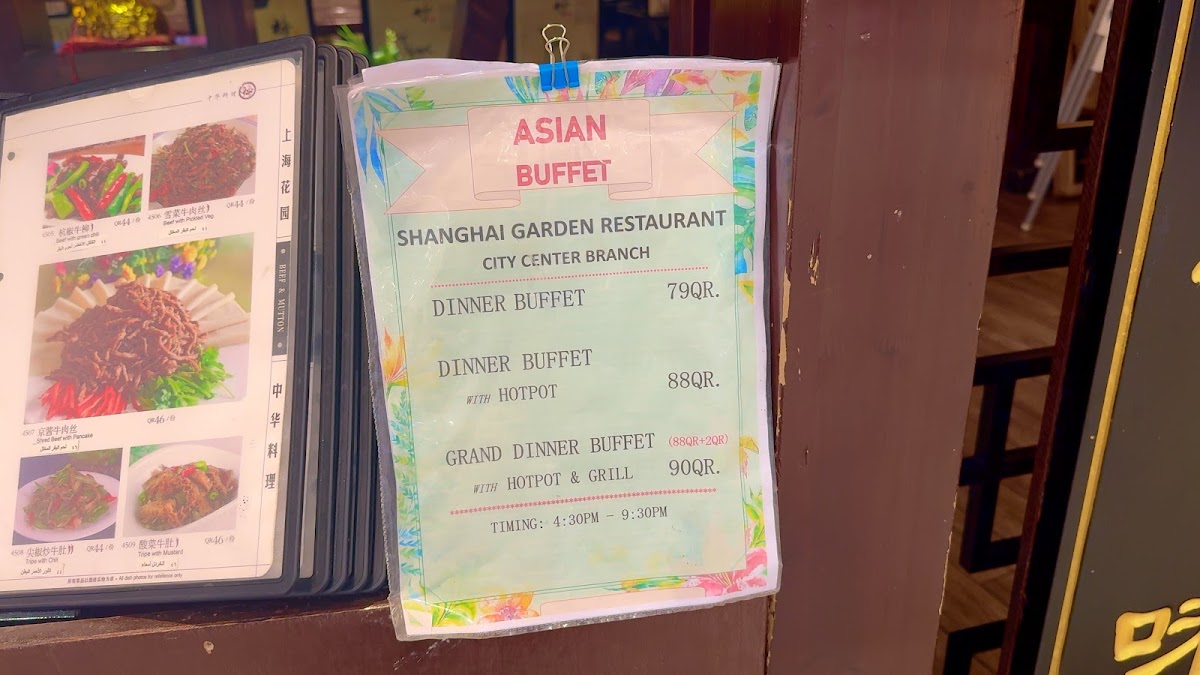 中华料理
上海花园
BEEF & MUTTON
中华料理
QR44/份
Beef with green chili
4506 雪菜牛肉丝 QR44/份
Beef with Pickled Veg
QR46/份
4507 京酱牛肉丝
Shred Beef with Pancake
4508 尖椒炒牛肚 QR44/份
Tripe with Chili
4509 酸菜牛肚 QR46/份
Tripe with Mustard
ASIAN
BUFFET
SHANGHAI GARDEN RESTAURANT
CITY CENTER BRANCH
DINNER BUFFET 79QR.
DINNER BUFFET
WITH HOTPOT 88QR.
GRAND DINNER BUFFET (88QR+2QR)
WITH HOTPOT & GRILL 90QR.
TIMING: 4:30PM - 9:30PM